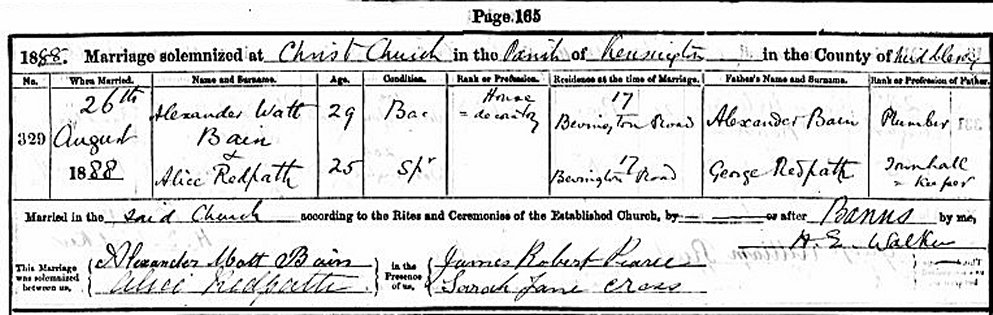 Page 165
1888. Marriage solemnized at Christ Church in the Parish of Kensington in the County of Middlesex
No. When Married. Name and Surname. Age. Condition. Rank or Profession. Residence at the time of Marriage. Father's Name and Surname. Rank or Profession of Father.
329 26th August 1888 Alexander Watt Bain & Alice Redpath
29 Bac House = decorator 17 Bevington Road Alexander Bain Plumber
25 Spr 17 Bevington Road George Redpath Townhall = Keeper
Married in the said Church according to the Rites and Ceremonies of the Established Church, by or after Banns by me,
H. E. Walker
This Marriage was solemnized between us, Alexander Watt Bain Alice Redpath
in the Presence of us, James Robert Pearce Sarah Jane Cross